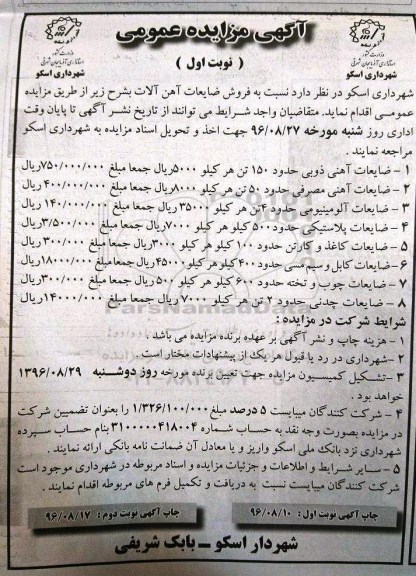 آگهی مزایده عمومی
( نوبت اول )
وزارت کشور
استانداری آذربایجان شرقی
شهرداری اسکو
وزارت کشور
استانداری آذربایجان شرقی
شهرداری اسکو
شهرداری اسکو در نظر دارد نسبت به فروش ضایعات آهن آلات بشرح زیر از طریق مزایده
عمومی اقدام نماید. متقاضیان واجد شرایط می توانند از تاریخ نشر آگهی تا پایان وقت
اداری روز شنبه مورخه ۹۶/۰۸/۲۷ جهت اخذ و تحویل اسناد مزایده به شهرداری اسکو
مراجعه نمایند .
۱ - ضایعات آهنی ذوبی حدود ۱۵۰ تن هر کیلو ۵۰۰۰ریال جمعا مبلغ ۷۵۰/۰۰۰/۰۰۰ریال
۲ - ضایعات آهنی مصرفی حدود ۵۰ تن هر کیلو ۸۰۰۰ریال جمعا مبلغ ۴۰۰/۰۰۰/۰۰۰ ریال
۳ - ضایعات آلومینیومی حدود ۴تن هر کیلو ۳۵۰۰۰ ریال جمعا مبلغ ۱۴۰/۰۰۰/۰۰۰ ریال
۴ - ضایعات پلاستیکی حدود ۵۰۰ کیلو هر کیلو ۷۰۰۰ریال جمعا مبلغ ۳/۵۰۰/۰۰۰ریال
۵ - ضایعات کاغذ و کارتن حدود ۱۰۰ کیلو هر کیلو ۳۰۰۰ریال جمعا مبلغ ۳۰۰/۰۰۰ ریال
۶ - ضایعات کابل و سیم مسی حدود ۴۰۰ کیلو هر کیلو ۴۵۰۰۰ریال جمعا مبلغ ۱۸۰۰۰/۰۰۰ریال
۷ - ضایعات چوب و تخته حدود ۶۰۰ کیلو هر کیلو ۵۰۰ ریال جمعا مبلغ ۳۰۰/۰۰۰ریال
۸ - ضایعات چدنی حدود ۲ تن هر کیلو ۷۰۰۰ ریال جمعا مبلغ ۱۴۰۰۰/۰۰۰ریال
شرایط شرکت در مزایده :
۱ - هزینه چاپ و نشر آگهی بر عهده برنده مزایده می باشد .
۲ -شهرداری در رد یا قبول هر یک از پیشنهادات مختار است .
۳ -تشکیل کمیسیون مزایده جهت تعیین برنده مورخه روز دوشنبه ۱۳۹۶/۰۸/۲۹
خواهد بود .
۴ - شرکت کنندگان میبایست ۵ درصد مبلغ ۱/۳۲۶/۱۰۰/۰۰۰ را بعنوان تضمین شرکت
در مزایده بصورت وجه نقد به حساب شماره ۳۱۰۰۰۰۰۴۱۸۰۰۴ بنام حساب سپرده
شهرداری نزد بانک ملی اسکو واریز و یا معادل آن ضمانت نامه بانکی ارائه نمایند .
۵ - سایر شرایط و اطلاعات و جزئیات مزایده و اسناد مربوطه در شهرداری موجود است
شرکت کنندگان میبایست نسبت به دریافت و تکمیل فرم های مربوطه اقدام نمایند .
چاپ آگهی نوبت اول: ۹۶/۰۸/۱۰
چاپ آگهی نوبت دوم: ۹۶/۰۸/۱۷
شهردار اسکو – بابک شریفی